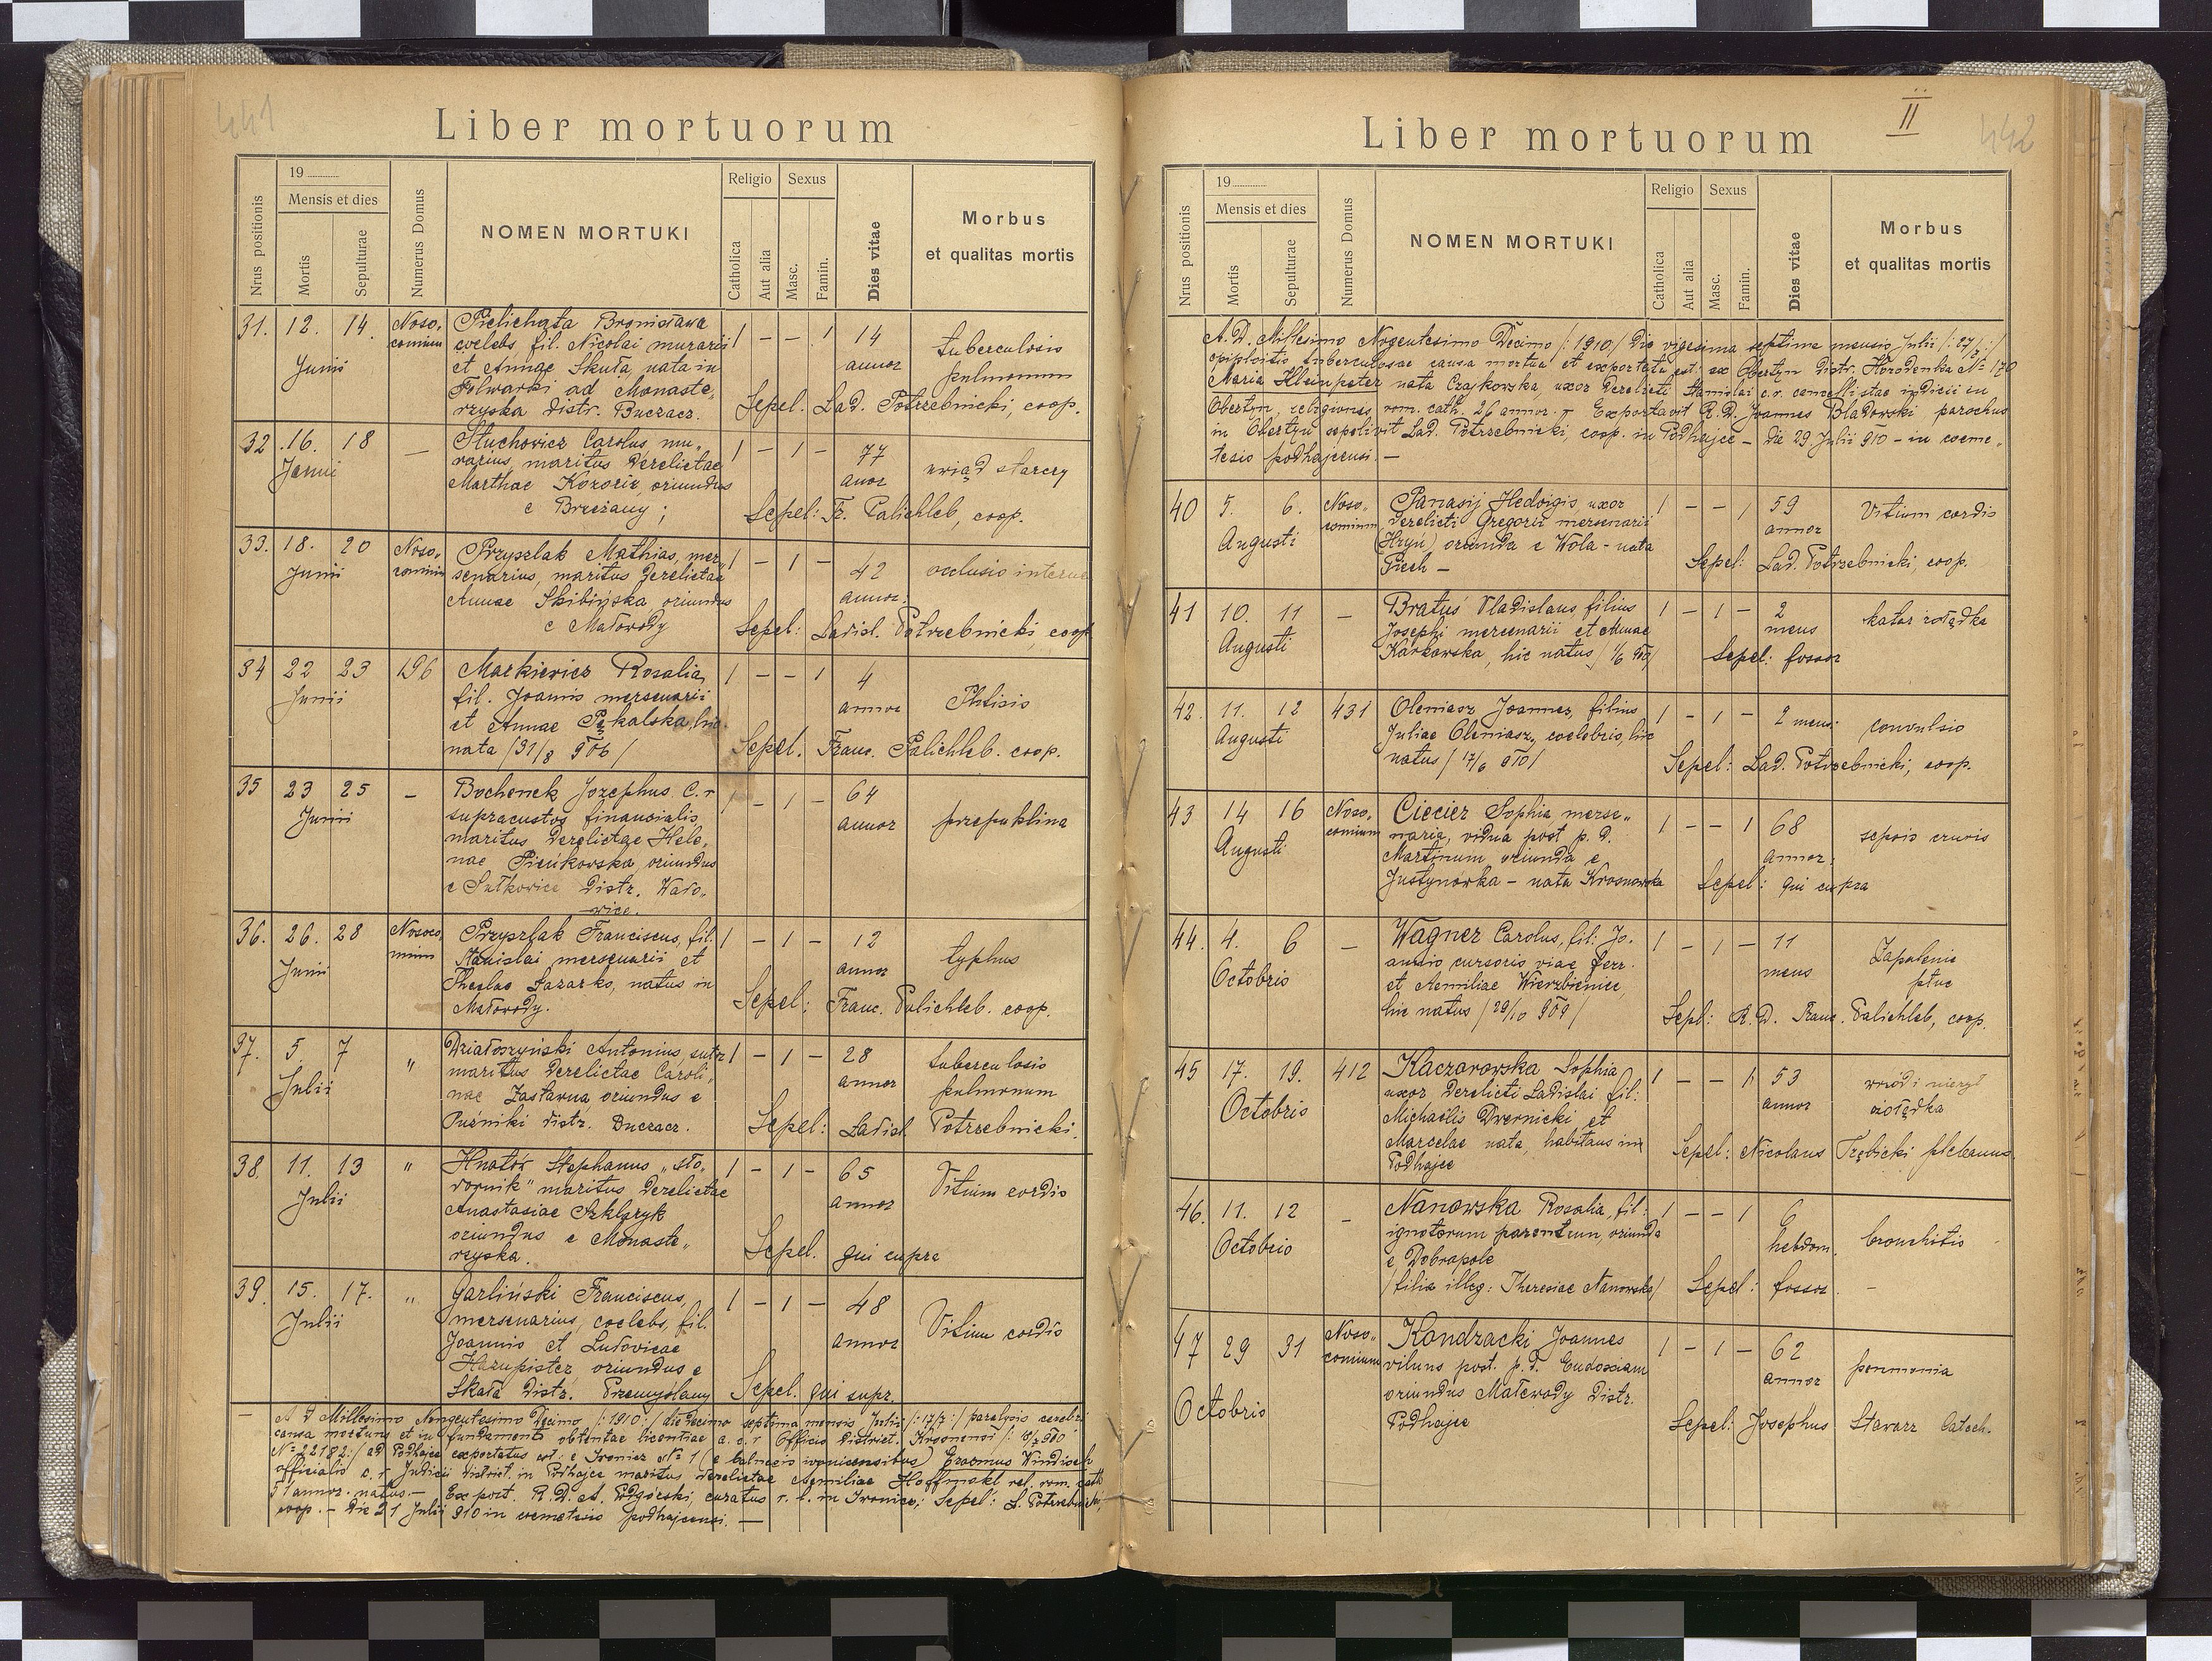 441
Liber mortuorum
Nrus positionis
19
Mensis et dies
Mortis
Sepulturae
Numerus Domus
NOMEN MORTUKI
Religio
Catholica
Aut alia
Sexus
Masc.
Famin.
Dies vitae
Morbus
et qualitas mortis
31. 12. 14. Noso- Pielichata Bronisława 1 – – 1 14 tuberculosis
cominm coelebs fil. Nicolai murarii annor pulmonum
Junii et Annae Skuła, nata in
Folwarki ad Monaste-
rzyska Distr. Buczacz. Sepel. Lad. Potrzebnicki, coop.
32 16. 18 – Słuchowicz Carolus, mu- 1 – 1 – 77 uwiąd starczy
Junii rarius, maritus derelictae anor
Marthae Kozoriz, oriundus
e Brzeżany; Sepel: Fr. Palichleb, coop.
33. 18. 20 Noso- Przyszlak Mathias, mer- 1 – 1 – 42 occlusio interna
Junii cominm senarius, maritus derelictae annor.
Annae Skibińska, oriundus
e Małowody Sepel: Ladisl. Potrzebnicki, coop
34 22 23 196 Mackiewicz Rosalia, 1 – – 1 4 Phtisis
Junii fil. Joannis mersenarii annor
et Annae Pękalska, hic
nata /31/8 906/ Sepel. Franc. Palichleb. coop.
35 23 25 – Bochenek Jozephus c. r 1 – 1 – 64 przepuklina
Junii supracustos financialis, annor
maritus derelictae Hele-
nae Pieńkowska oriundus
e Sułkowice Distr. Wado-
wice.
36. 26. 28 Nosoco- Przyszlak Franciscus, fil. 1 – 1 – 12 typhus
Junii minm Stanislai mersenarii et annor
Theclae Łazarko, natus in
Małowody. Sepel: Franc. Palichleb. coop.
37. 5. 7 " Działoszyński Antonius, sutr 1 – 1 – 28 tuberculosis
Julii maritus derelictae Caroli- annor pulmonum
nae Zastawna, oriundus e
Puźniki distr. Buczacz. Sepel: Ladisl. Potrzebnicki.
38. 11. 13 " Hnatów Stephanus „sto- 1 – 1 – 65 Vitium cordis
Julii rożnik" maritus derelictae annor
Anastasiae Szklaryk
oriundus e Monaste-
rzyska. Sepel. qui supra
39. 15. 17. " Garliński Franciscus, 1 – 1 – 48 Vitium cordis
Julii mersenarius, coelebs, fil. annor
Joannis et Ludovicae
Harupister oriundus e
Skała Distr. Przemyślany Sepel. qui supr.
– A D Millesimo Nongentesimo Decimo /:1910:/ die decimo septima mensis Julii /:17/7:/ paralysis cerebri
causa mortuus et in fundamento obtentae licentiae a. c. r Officio District. Krosnensi /: 18/7 910
Nº 22182:/ ad Podhajce exportatus est: e Iwonicz Nº 1 (e balneis iwonicensibus) Erasmus Windisch
officialis c. r Judicii District. in Podhajce maritus derelictae Aemiliae Hoffmakl rel. rom. cath
51 annor. natus. – Export. R.D. A. Podgórski, curatus r. l. in Iwonicz; Sepel: L. Potrzebnicki,
coop. – Die 21 Julii 910 in coemeterio podhajcensi. –
II
442
Liber mortuorum
Nrus positionis
19
Mensis et dies
Mortis
Sepulturae
Numerus Domus
NOMEN MORTUKI
Religio
Catholica
Aut alia
Sexus
Masc.
Famin.
Dies vitae
Morbus
et qualitas mortis
A.D. Millesimo Nogentesimo Decimo /:1910/ Die vigesima septima mensis Julii /:27/7:/
epiploitis tuberculosae causa mortua et exportata est: ex Obertyn Distr. Horodenka Nº 170
Maria Kleinpeter nata Czajkowska, uxor derelicti Stanislai c.r. cancellistae indicii in
Obertyn, religionis rom. cath. 26 annor. – Exportavit R.D. Joannes Bladowski parochus
in Obertyn sepelivit Lad. Potrzebnicki, coop. in Podhajce – die 29 Julii 910 – in coeme-
terio podhajcensi. –
40 5. 6. Noso- Panasij Hedvigis uxor 1 – – 1 59 Vitium cordis
cominm derelicti Gregorii mersenarii annor
Augusti (Hryń) oriunda e Wola – nata
Piech – Sepel: Lad. Potrzebnicki, coop.
41 10. 11 – Bratuś Vladislaus filius 1 – 1 – 2 katar żołądka
Augusti Josephi mercenarii et Annae mens
Karkowska, hic natus /1/6 910/ Sepel: fossor
42. 11. 12 431 Oleniasz Joannes, filius 1 – 1 – 2 mens. convulsio
Augusti Juliae Oleniasz, coelebis, hic
natus /17/6 910/ Sepel: Lad. Potrzebnicki, coop.
43 14 16 Noso- Ciecierz Sophia merse- 1 – – 1 68 sepsis cruris
cominm naria, vidua post p. d. annor.
Augusti Martinum oriunda e
Justynówka – nata Krosnowska Sepel: qui supra
44. 4. 6 – Wagner Carolus, fil: Jo- 1 – 1 – 11 Zapalenie
Octobris annis cursoris viae ferr. mens płuc
et Aemiliae Wierzbieniec,
hic natus /29/10 909/ Sepl: R.D. Franc. Palichleb, coop.
45 17. 19. 412 Kaczorowska Sophia 1 – – 1 53 wrzód i nieżyt
Octobris uxor derelicti Ladislai fil: annor żołądka
Michaëlis Dwernicki et
Marcelae nata, habitans in
Podhajce Sepel: Nicolaus Trębicki plebanus.
46. 11. 12 – Nanowska Rosalia, fil: 1 – – 1 6 bronchitis
Octobris ignotorum parentum, oriunda hebdom.
e Dobropole
/filia illeg: Theresiae Nanowska/ Sepel: fossor. –
47 29 31 Noso- Kondzacki Joannes 1 – 1 – 62 pneumonia
cominm viduus post. p. d. Eudoxiam annor
Octobris oriundus Małowody Distr.
Podhajce Sepel: Josephus Stawarz Catech.